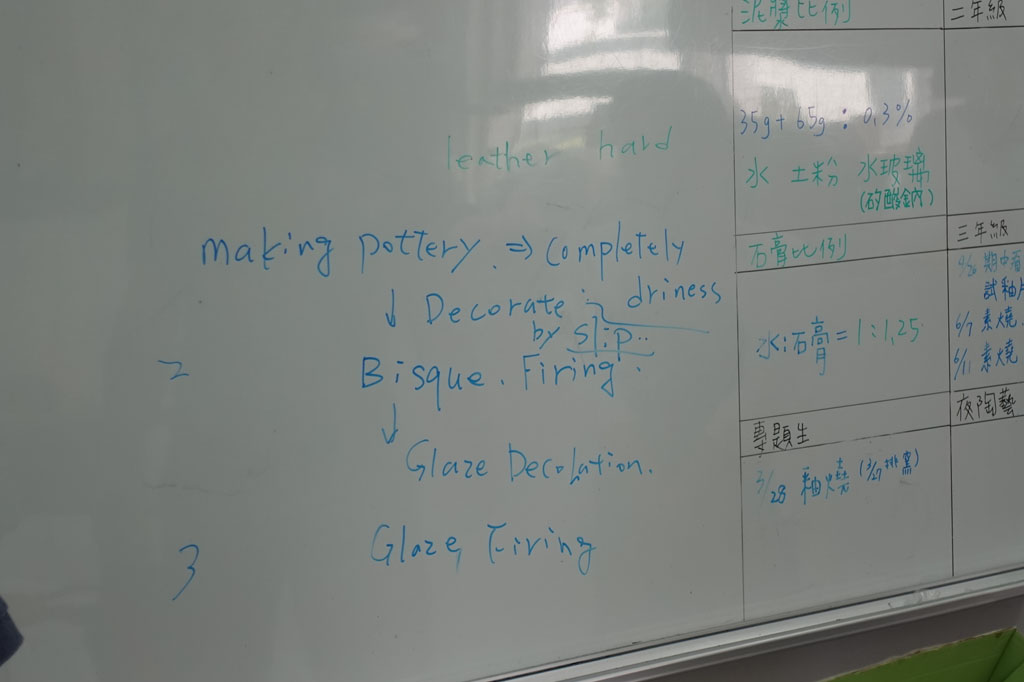 leather hard
making pottery. ⇒ completely
↓ Decorate : driness
by slip..
2 Bisque. Firing.
↓
Glaze Decolation.
3 Glaze, Firing
泥漿比例
35g + 65g : 0.3%
水 土粉 水玻璃
(矽酸鈉)
石膏比例
水:石膏 = 1:1.25
專題生
3/28 釉燒 (3/27 排窯)
二年級
三年級
期中
試釉
6/7 素燒
6/11 素燒
夜陶藝